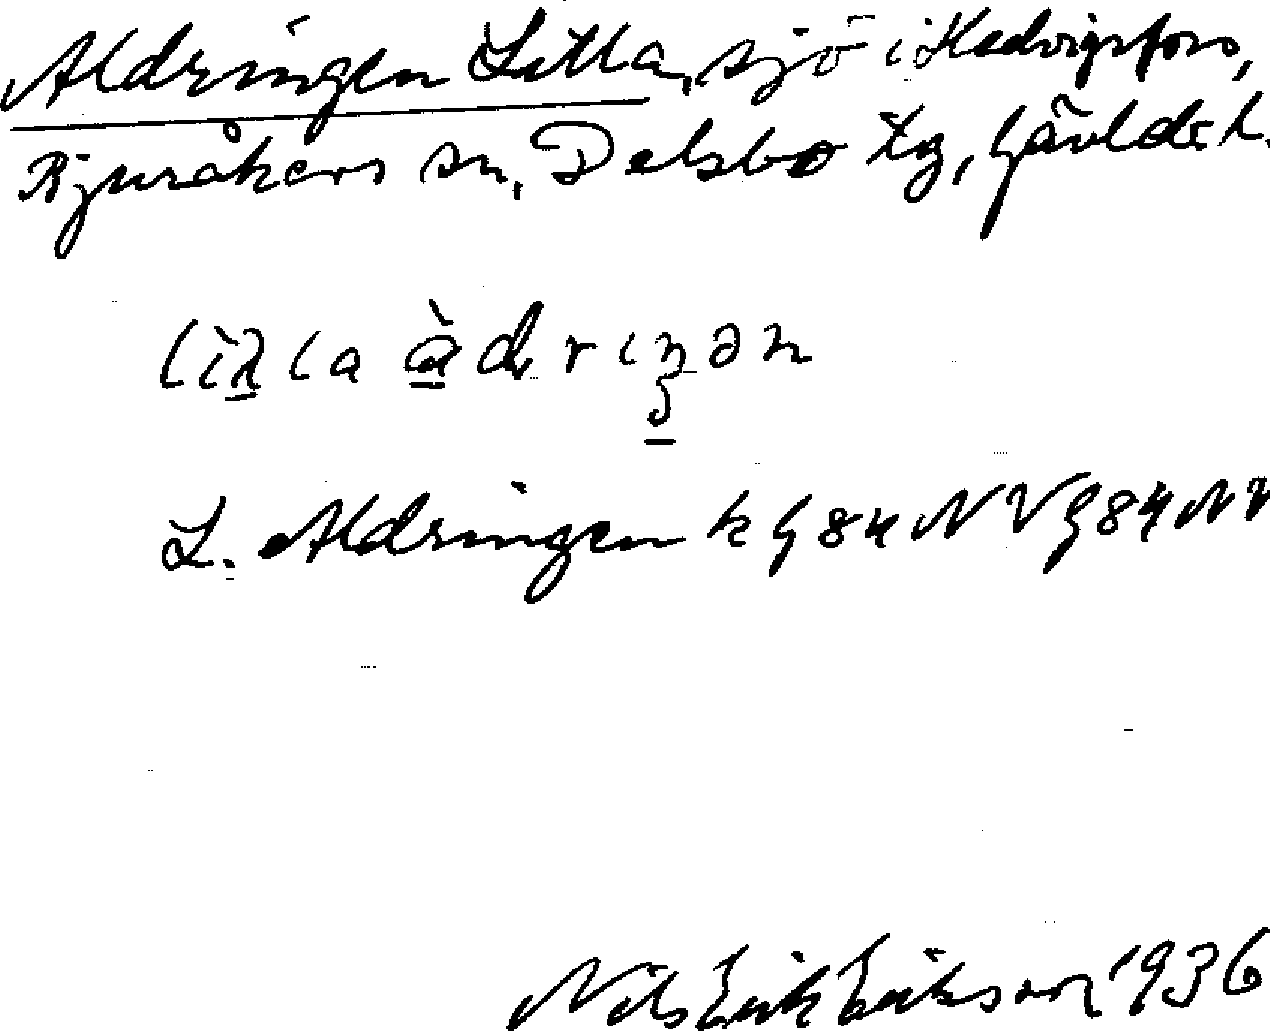 Aldringen Litla, sjö i Hedvigsfors,
Bjuråkers sn, Delsbo tg, Gävld. l.
lìlla àdriŋən
L. Aldringen k G 84 NV G 84 NV
Nils Erik Eriksson 1936